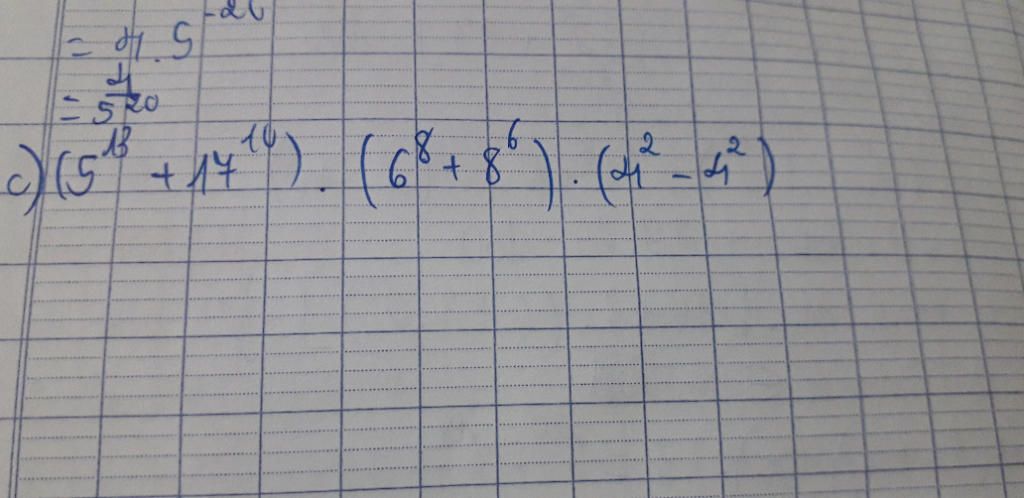 = 4.5^-20
= 4/5^20
c) (5^13 + 17^10) . (6^8 + 8^6) . (4^2 - 4^2)